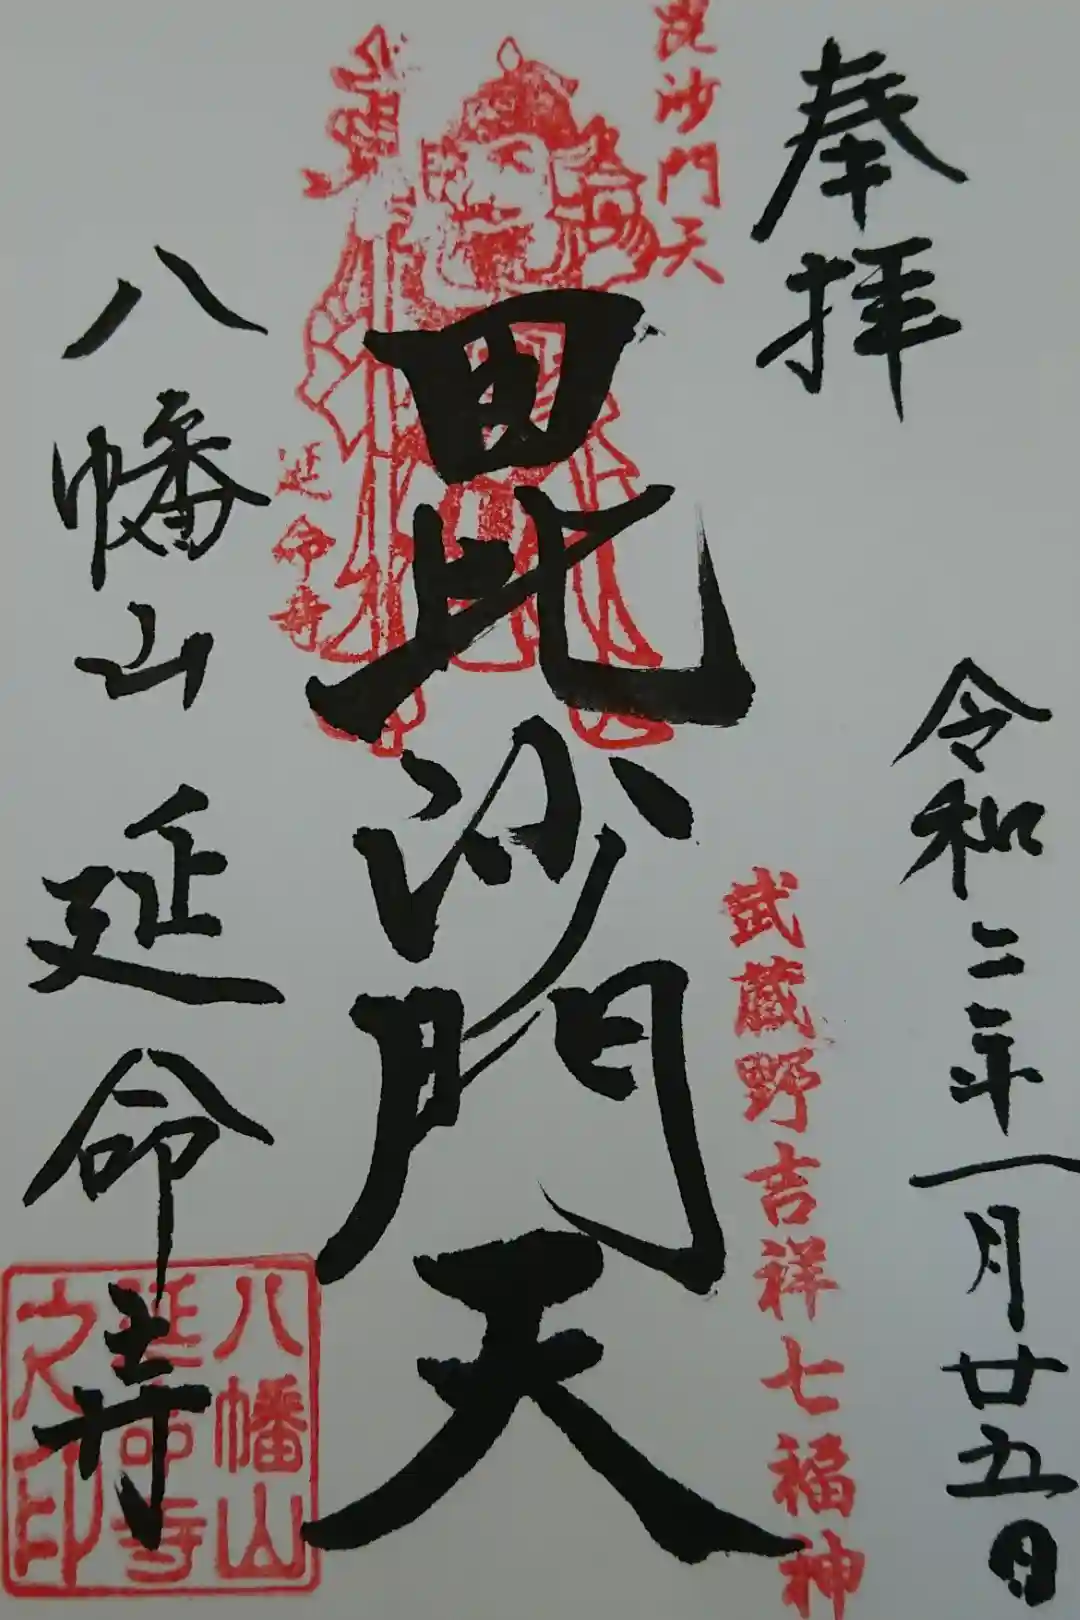 奉拝
令和二年一月廿五日
毘沙門天
武蔵野吉祥七福神
毘沙門天
延命寺
八幡山延命寺
八幡山
延命寺
之印